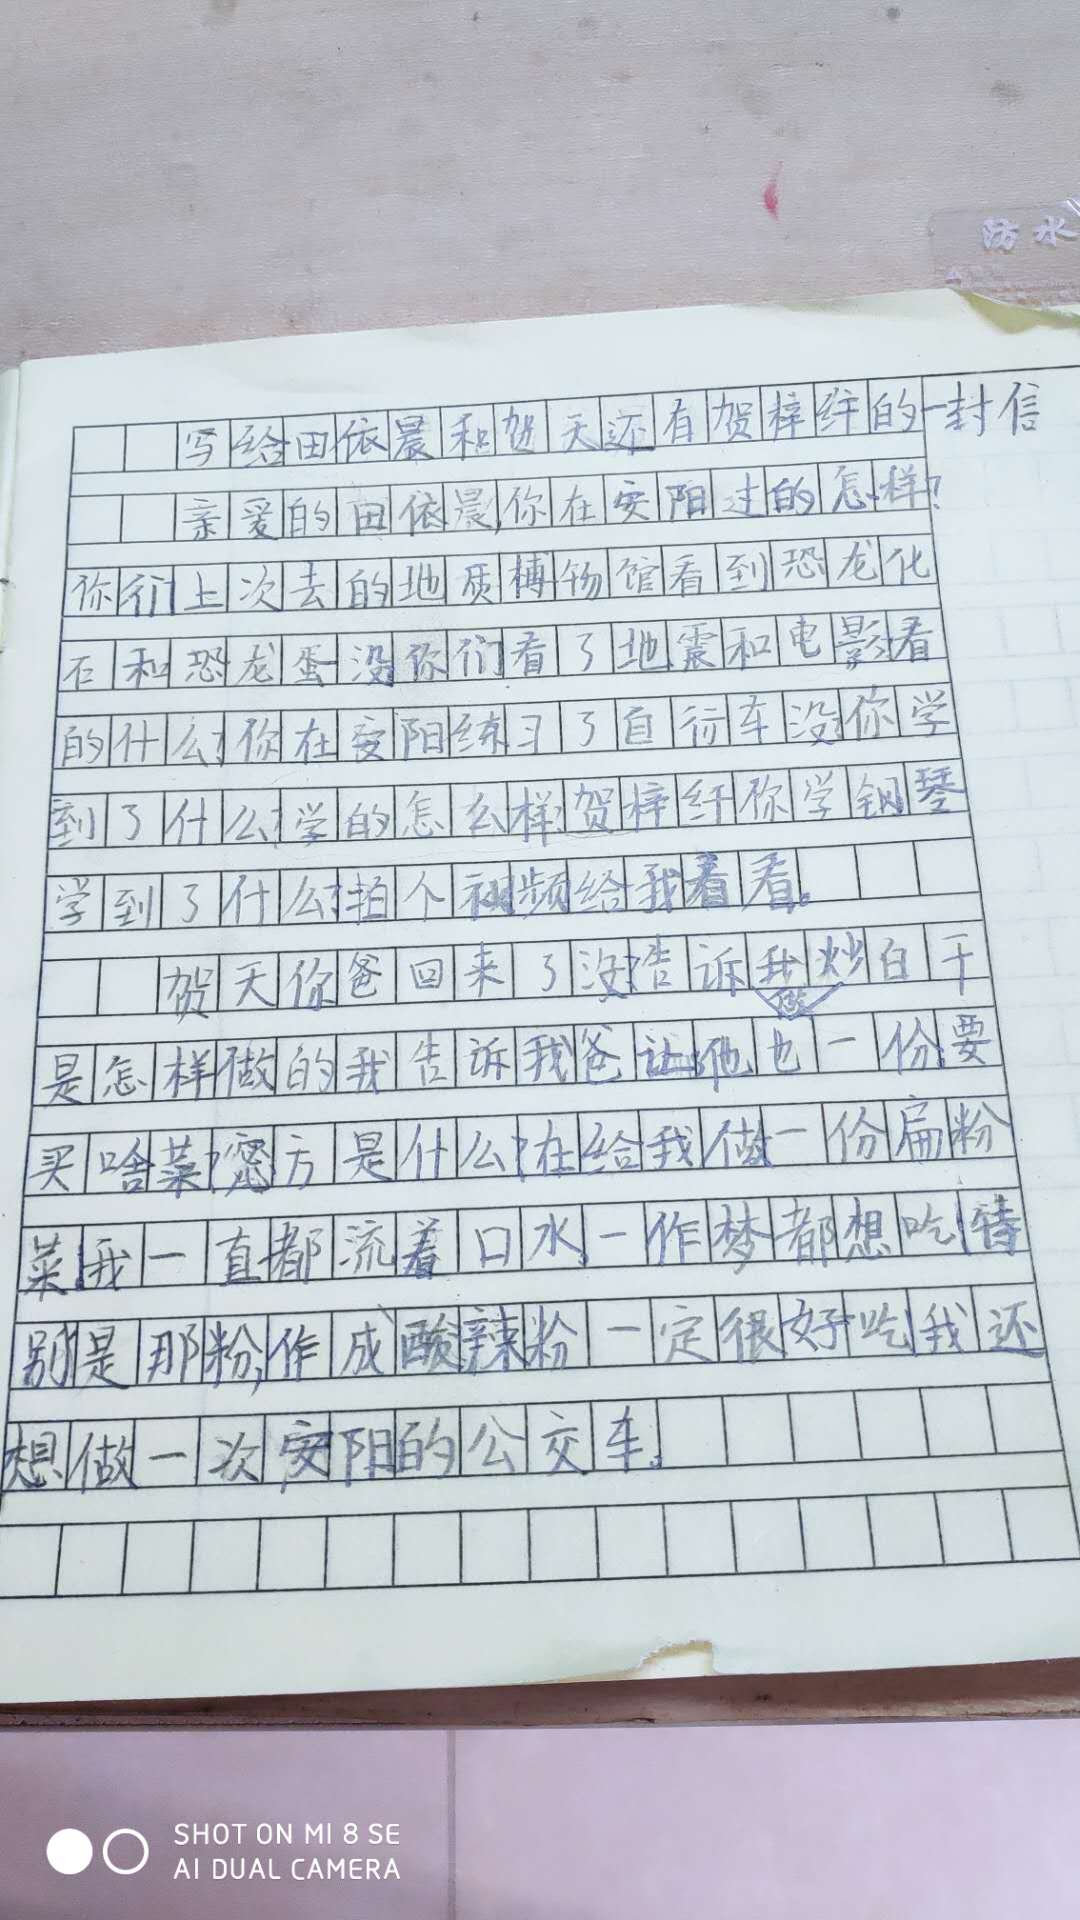 防水
写给田依晨和贺天还有贺梓纤的一封信
亲爱的田依晨,你在安阳过的怎样?
你们上次去的地质博物馆看到恐龙化
石和恐龙蛋没你们看了地震和电影看
的什么?你在安阳练习了自行车没你学
到了什么?学的怎么样贺梓纤你学钢琴
学到了什么?拍个视频给我看看。
贺天你爸回来了没?告诉我炒白干
是怎样做的我告诉我爸让他也做一份要
买啥菜?密方是什么?在给我做一份扁粉
菜我一直都流着口水,一作梦都想吃特
别是那粉,作成酸辣粉一定很好吃我还
想做一次安阳的公交车。
SHOT ON MI 8 SE
AI DUAL CAMERA